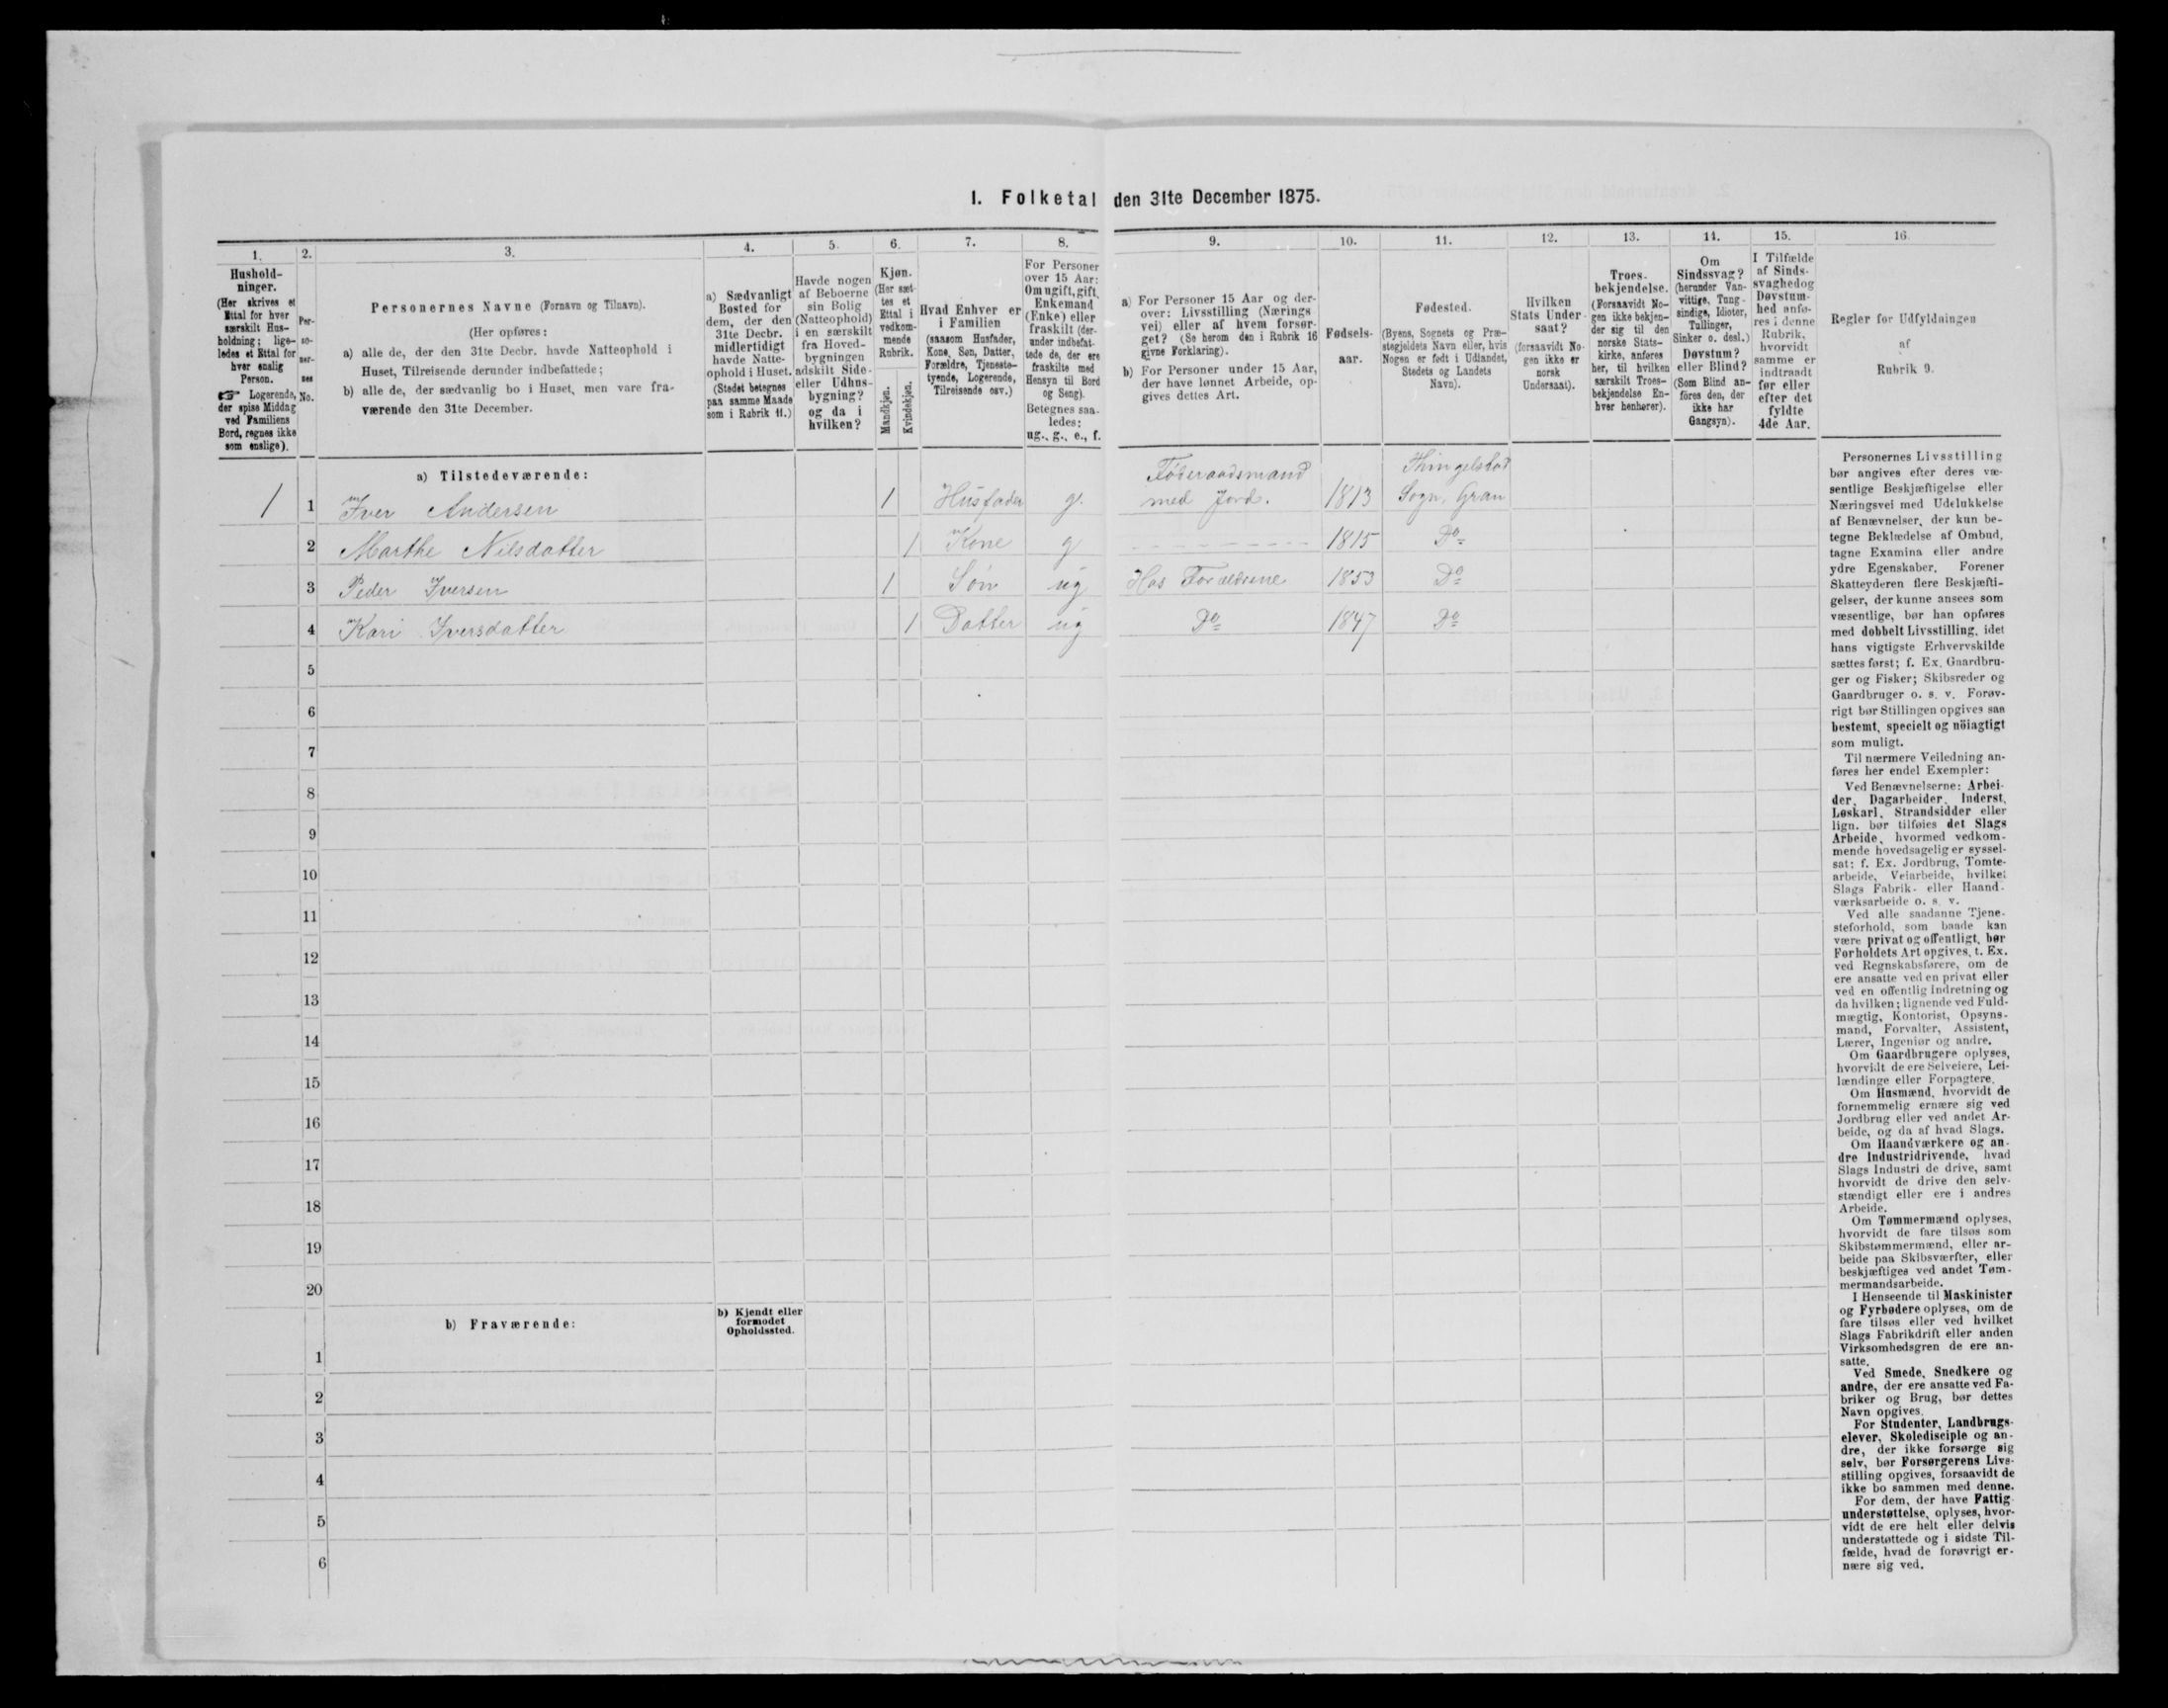 I. Folketal den 31te December 1875.
1.
2.
3.
4.
5.
6.
7.
8.
9.
10.
11.
12.
13.
14.
15.
16.
Hushold-
ninger.
(Her skrives et
Ettal for hver
særskilt Hus-
holdning; lige-
ledes et Ettal for
hver enslig
Person.
☞ Logerende,
der spise Middag
ved Familiens
Bord, regnes ikke
som enslige).
Per-
so-
ner-
nes
No.
Personernes Navne (Fornavn og Tilnavn).
(Her opføres:
a) alle de, der den 31te Decbr. havde Natteophold i
Huset, Tilreisende derunder indbefattede;
b) alle de, der sædvanlig bo i Huset, men vare fra-
værende den 31te December.
a) Sædvanligt
Bosted for
dem, der den
31te Decbr.
midlertidigt
havde Natte-
ophold i Huset.
(Stedet betegnes
paa samme Maade
som i Rubrik 11.)
Havde nogen
af Beboerne
sin Bolig
(Natteophold)
i en særskilt
fra Hoved-
bygningen
adskilt Side-
eller Udhus-
bygning?
og da i
hvilken?
Kjøn.
(Her sæt-
tes et
Ettal i
vedkom-
mende
Rubrik.
Mandkjøn.
Kvindekjøn.
Hvad Enhver er
i Familien
(saasom Husfader,
Kone, Søn, Datter,
Forældre, Tjeneste-
tyende, Logerende,
Tilreisende osv.)
For Personer
over 15 Aar:
Om ugift, gift,
Enkemand
(Enke) eller
fraskilt (der-
under indbefat-
tede de, der ere
fraskilte med
Hensyn til Bord
og Seng).
Betegnes saa-
ledes:
ug., g., e., f.
a) For Personer 15 Aar og der-
over: Livsstilling (Nærings
vei) eller af hvem forsør-
get? (Se herom den i Rubrik 16
givne Forklaring).
b) For Personer under 15 Aar,
der have lønnet Arbeide, op-
gives dettes Art.
Fødsels-
aar.
Fødested.
(Byens, Sognets og Præ-
stegjeldets Navn eller, hvis
Nogen er født i Udlandet,
Stedets og Landets
Navn).
Hvilken
Stats Under-
saat?
(forsaavidt No-
gen ikke er
norsk
Undersaat).
Troes-
bekjendelse.
(Forsaavidt No-
gen ikke bekjen-
der sig til den
norske Stats-
kirke, anføres
her, til hvilken
særskilt Troes-
bekjendelse En-
hver henhører).
Om
Sindssvag?
(herunder Van-
vittige, Tung-
sindige, Idioter,
Tullinger,
Sinker o. desl.)
Døvstum?
eller Blind?
(Som Blind an-
føres den, der
ikke har
Gangsyn).
I Tilfælde
af Sinds-
svaghed og
Døvstum-
hed anfø-
res i denne
Rubrik,
hvorvidt
samme er
indtraadt
før eller
efter det
fyldte
4de Aar.
Regler for Udfyldningen
af
Rubrik 9.
a) Tilstedeværende:
1 1 Iver Andersen 1 Husfader g. Føderaadsmand med Jord. 1813 Thingelstad Sogn, Gran
2 Marthe Nilsdatter 1 Kone g - - - - - - 1815 Do
3 Peder Iversen 1 Søn ug Hos Forældrene 1853 Do
4 Kari Iversdatter 1 Datter ug Do 1847 Do
5
6
7
8
9
10
11
12
13
14
15
16
17
18
19
20
b) Fraværende:
b) Kjendt eller
formodet
Opholdssted.
1
2
3
4
5
6
Personernes Livsstilling
bør angives efter deres væ-
sentlige Beskjæftigelse eller
Næringsvei med Udelukkelse
af Benævnelser, der kun be-
tegne Beklædelse af Ombud,
tagne Examina eller andre
ydre Egenskaber. Forener
Skatteyderen flere Beskjæfti-
gelser, der kunne ansees som
væsentlige, bør han opføres
med dobbelt Livsstilling, idet
hans vigtigste Erhvervskilde
sættes først; f. Ex. Gaardbru-
ger og Fisker; Skibsreder og
Gaardbruger o. s. v. Forøv-
rigt bør Stillingen opgives saa
bestemt, specielt og nöiagtigt
som muligt.
Til nærmere Veiledning an-
føres her endel Exempler:
Ved Benævnelserne: Arbei-
der, Dagarbeider, Inderst,
Løskarl, Strandsidder eller
lign. bør tilføies det Slags
Arbeide, hvormed vedkom-
mende hovedsagelig er syssel-
sat; f. Ex. Jordbrug, Tomte-
arbeide, Veiarbeide, hvilket
Slags Fabrik- eller Haand-
værksarbeide o. s. v.
Ved alle saadanne Tjene-
steforhold, som baade kan
være privat og offentligt, bør
Forholdets Art opgives, t. Ex.
ved Regnskabsførere, om de
ere ansatte ved en privat eller
ved en offentlig Indretning og
da hvilken; lignende ved Fuld-
mægtig, Kontorist, Opsyns-
mand, Forvalter, Assistent,
Lærer, Ingeniør og andre.
Om Gaardbrugere oplyses,
hvorvidt de ere Selveiere, Lei-
lændinge eller Forpagtere.
Om Husmænd, hvorvidt de
fornemmelig ernære sig ved
Jordbrug eller ved andet Ar-
beide, og da af hvad Slags.
Om Haandværkere og an-
dre Industridrivende, hvad
Slags Industri de drive, samt
hvorvidt de drive den selv-
stændigt eller ere i andres
Arbeide.
Om Tømmermænd oplyses,
hvorvidt de fare tilsøs som
Skibstømmermænd, eller ar-
beide paa Skibsværfter, eller
beskjæftiges ved andet Tøm-
mermandsarbeide.
I Henseende til Maskinister
og Fyrbødere oplyses, om de
fare tilsøs eller ved hvilket
Slags Fabrikdrift eller anden
Virksomhedsgren de ere an-
satte.
Ved Smede, Snedkere og
andre, der ere ansatte ved Fa-
briker og Brug, bør dettes
Navn opgives.
For Studenter, Landbrugs-
elever, Skoledisciple og an-
dre, der ikke forsørge sig
selv, bør Forsørgerens Livs-
stilling opgives, forsaavidt de
ikke bo sammen med denne.
For dem, der have Fattig-
understøttelse, oplyses, hvor-
vidt de ere helt eller delvis
understøttede og i sidste Til-
fælde, hvad de forøvrigt er-
nære sig ved.